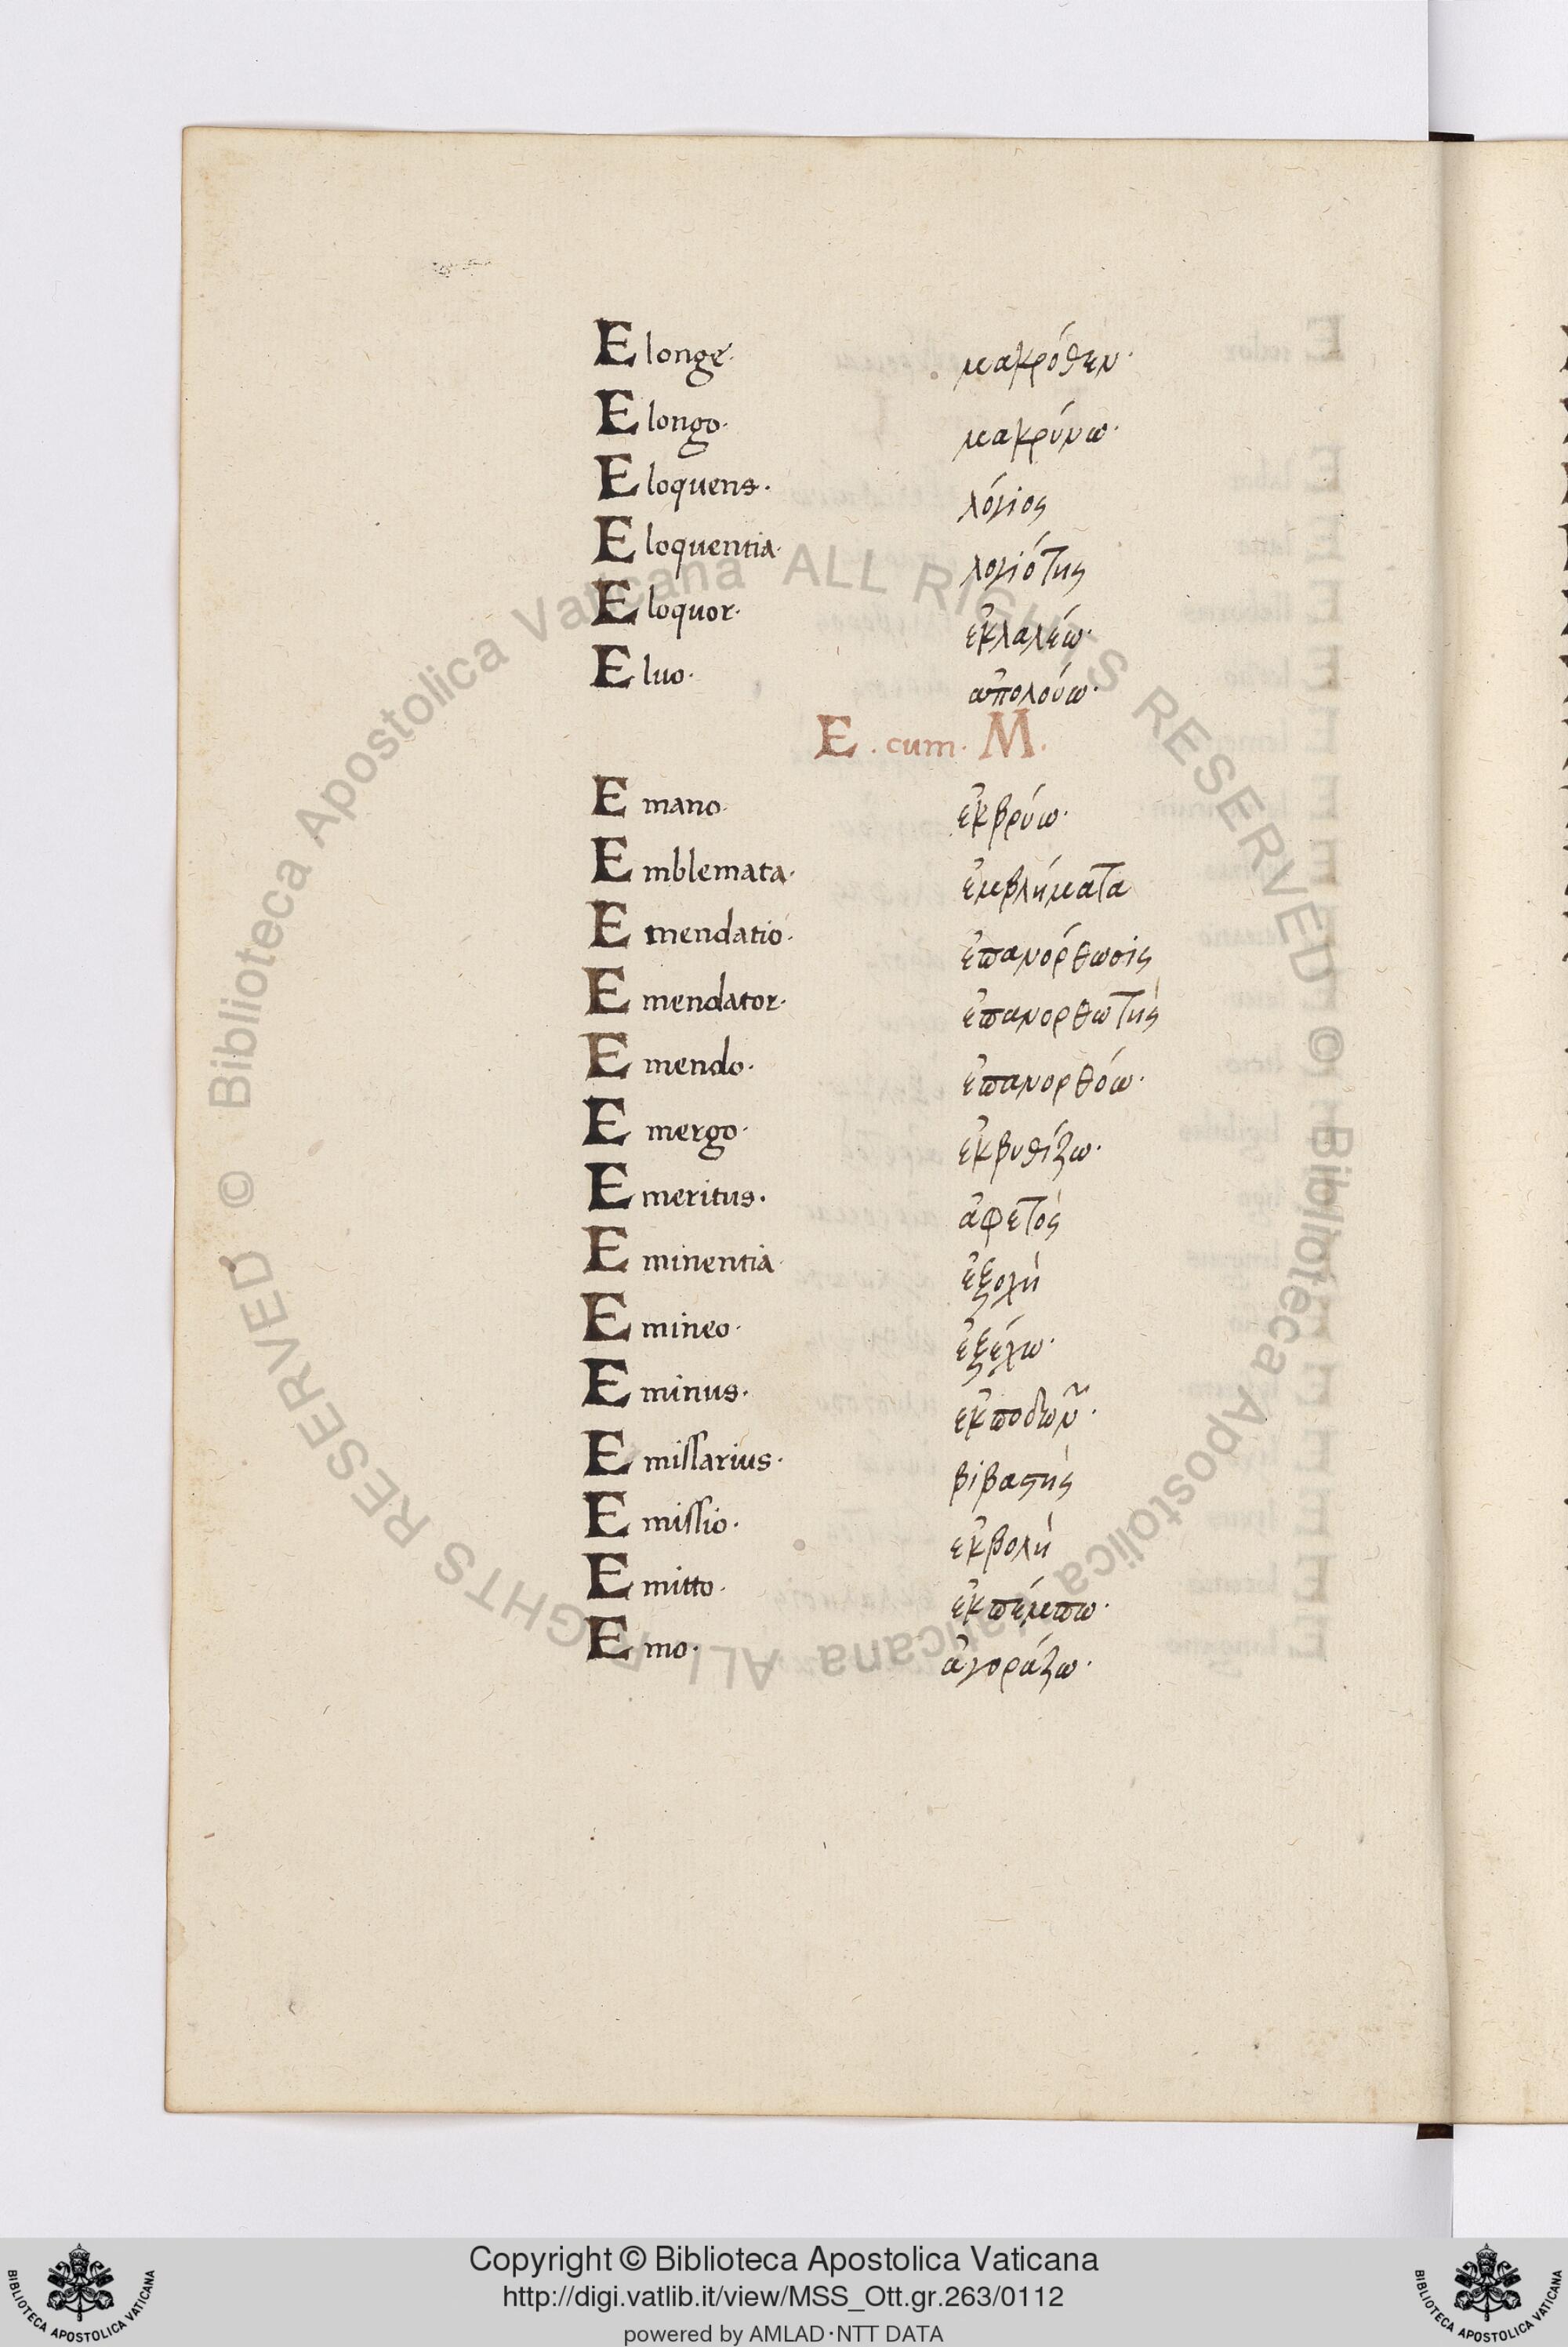 Elonge· μακρόθεν·
Elongo· μακρύνω·
Eloquens· λόγιος
Eloquentia· λογιότης
Eloquor· ἐκλαλέω·
Eluo· ἀπολούω·
E · cum · M·
Emano· ἐκβρύω·
Emblemata· ἐμβλήματα
Emendatio· ἐπανόρθωσις
Emendator· ἐπανορθωτής
Emendo· ἐπανορθόω·
Emergo· ἐκβυθίζω·
Emeritus· ἀφετός
Eminentia· ἐξοχή
Emineo· ἐξέχω·
Eminus· ἐκποδῶν·
Emissarius· βιβαστής
Emissio· ἐκβολή
Emitto· ἐκπέμπω·
Emo· ἀγοράζω·
© Biblioteca Apostolica Vaticana ALL RIGHTS RESERVED © Biblioteca Apostolica Vaticana ALL RIGHTS RESERVED
Copyright © Biblioteca Apostolica Vaticana
http://digi.vatlib.it/view/MSS_Ott.gr.263/0112
powered by AMLAD·NTT DATA
BIBLIOTECA APOSTOLICA VATICANA
BIBLIOTECA APOSTOLICA VATICANA